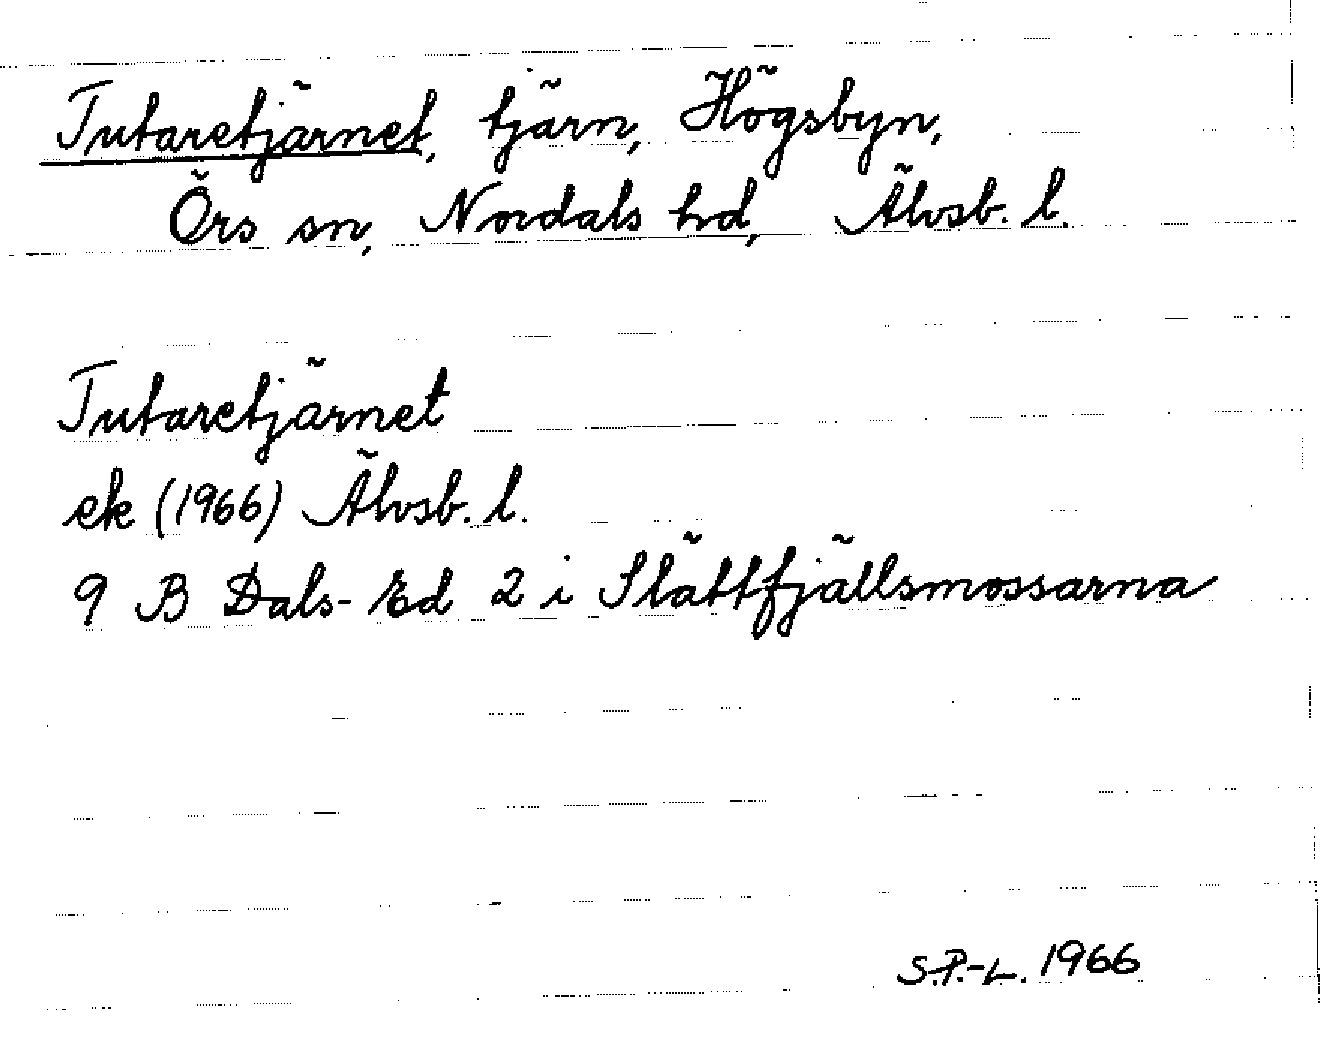 Tutaretjärnet, tjärn, Högsbyn,
Örs sn, Nordals hd, Älvsb. l.
Tutaretjärnet
ek (1966) Älvsb. l.
9 B Dals-Ed 2 i Slättfjällsmossarna
S.P.-L. 1966